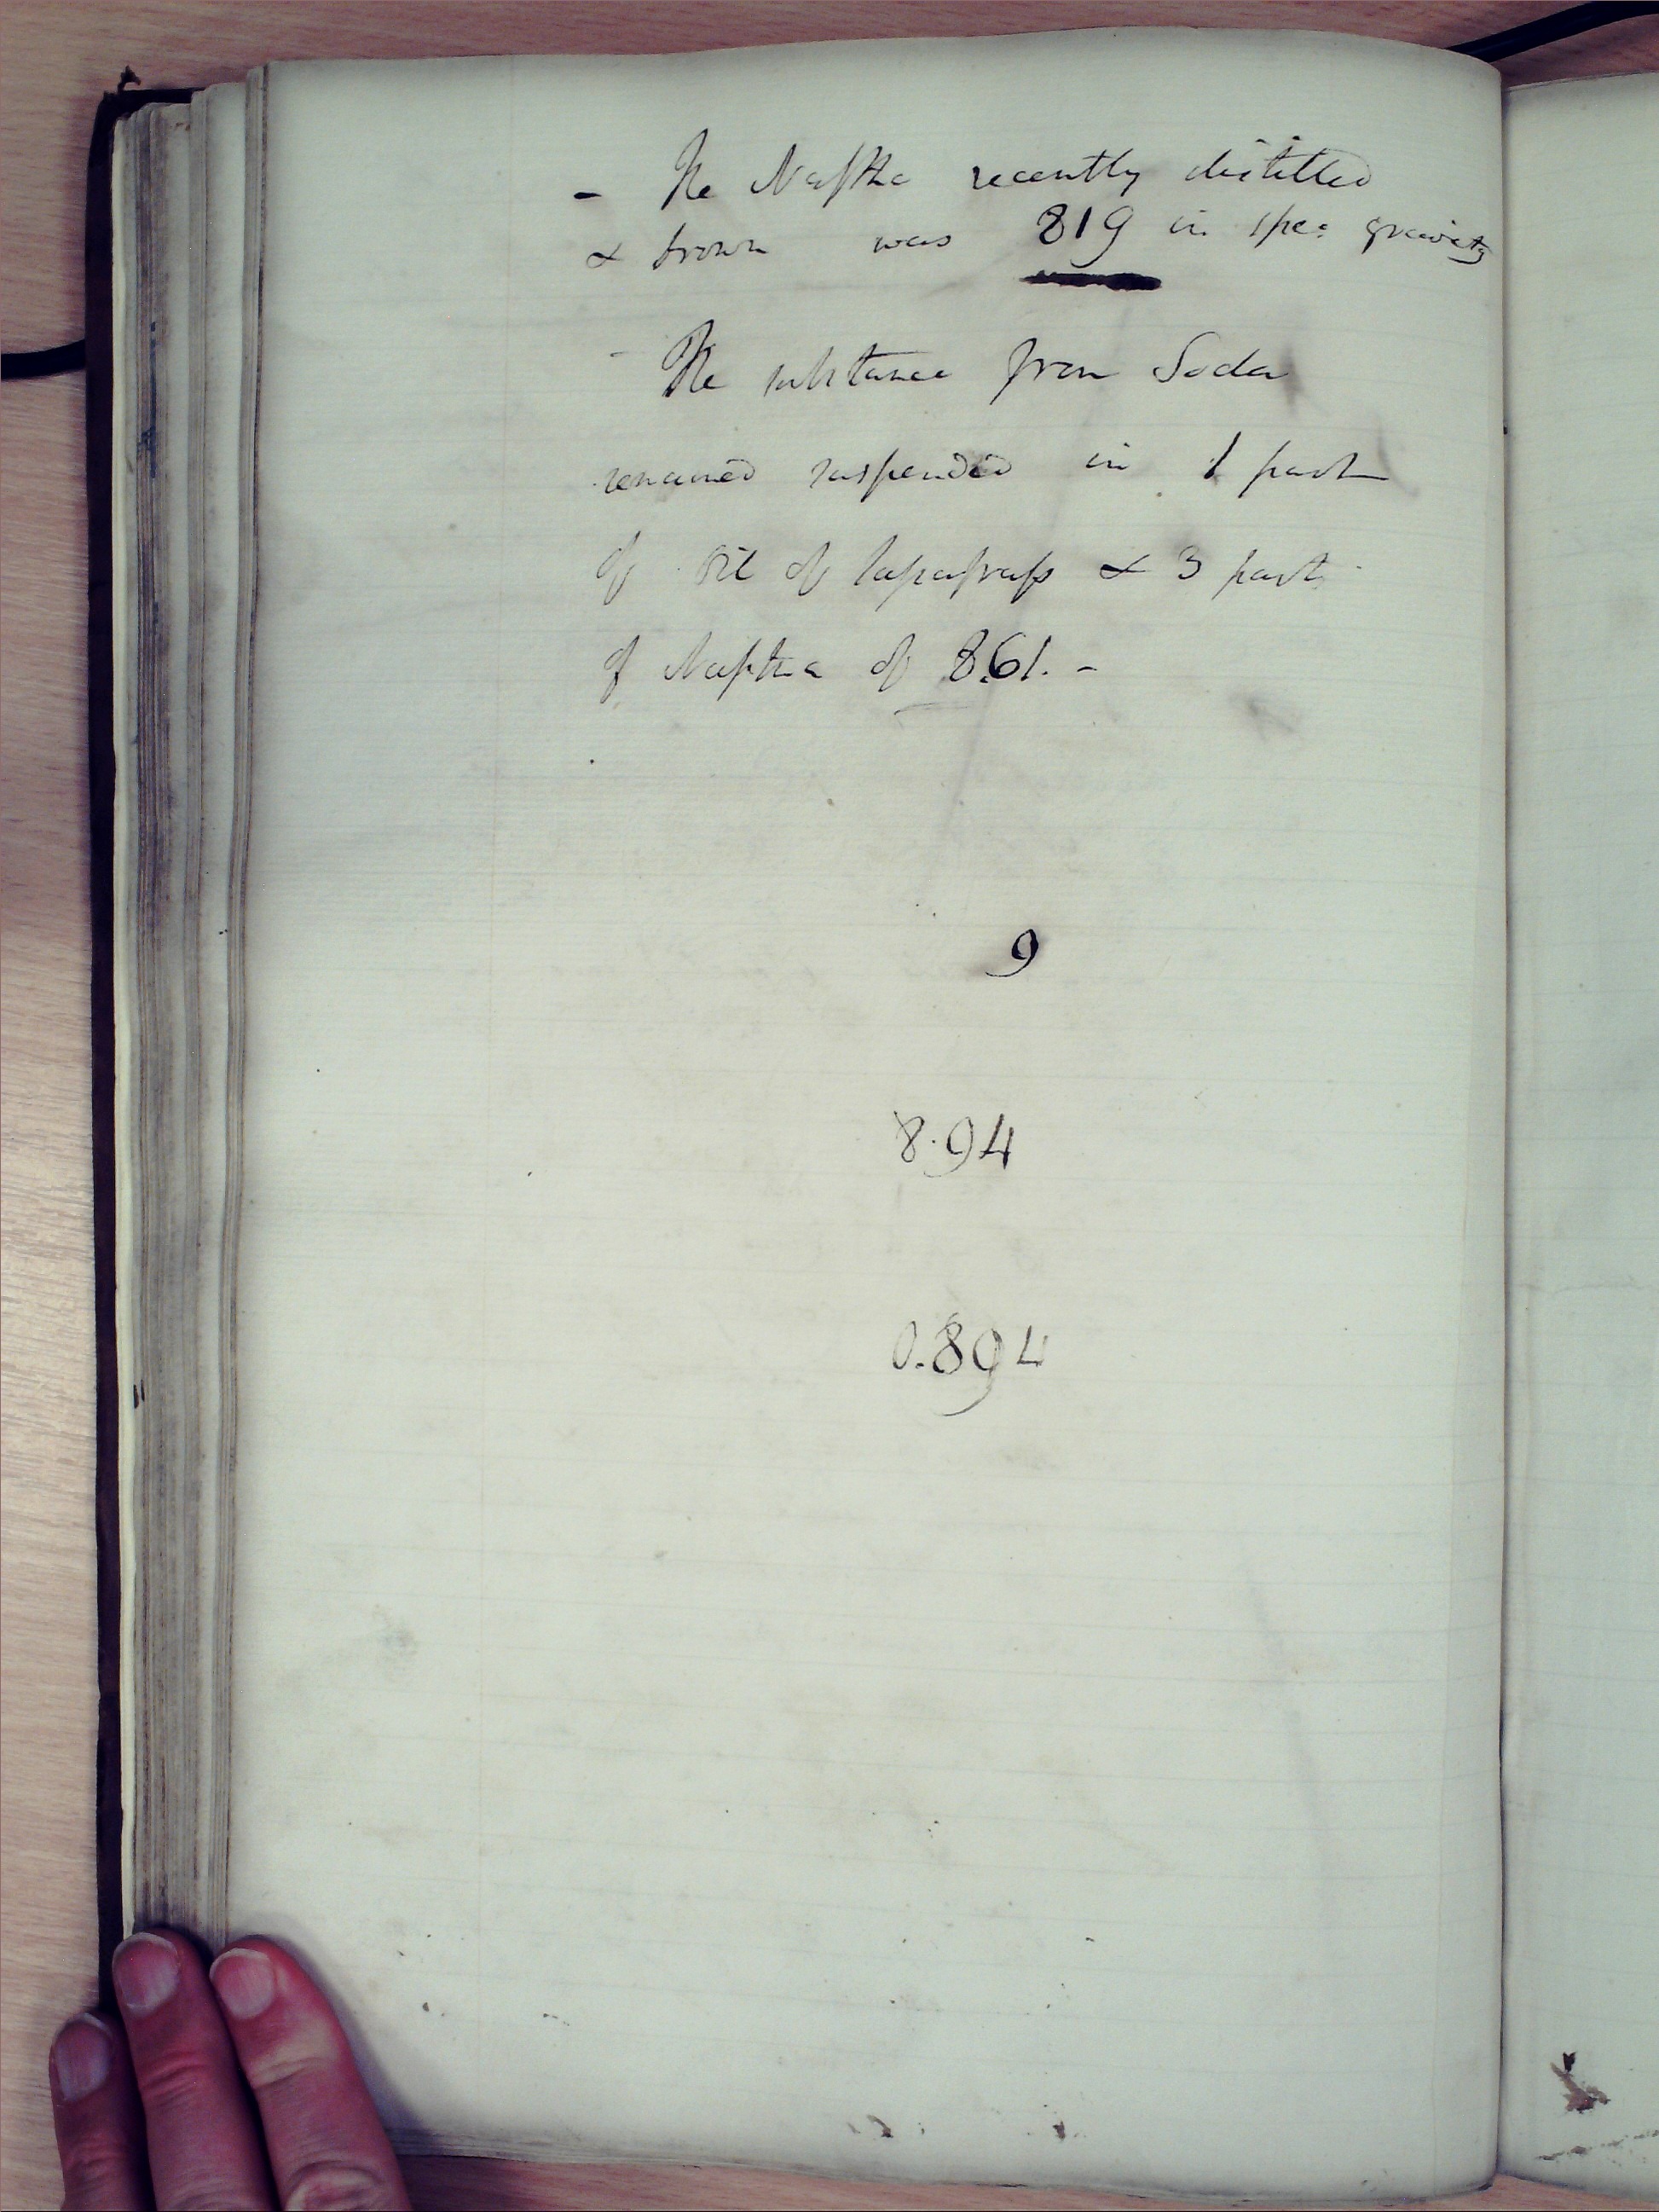 - The Naptha recently distilled
& brown was 819 in spec: gravity
- The substance from Soda
remained suspended in 1 part
of Oil of Sassafrass & 3 part
of Naptha of 861. -
9
8.94
0.894